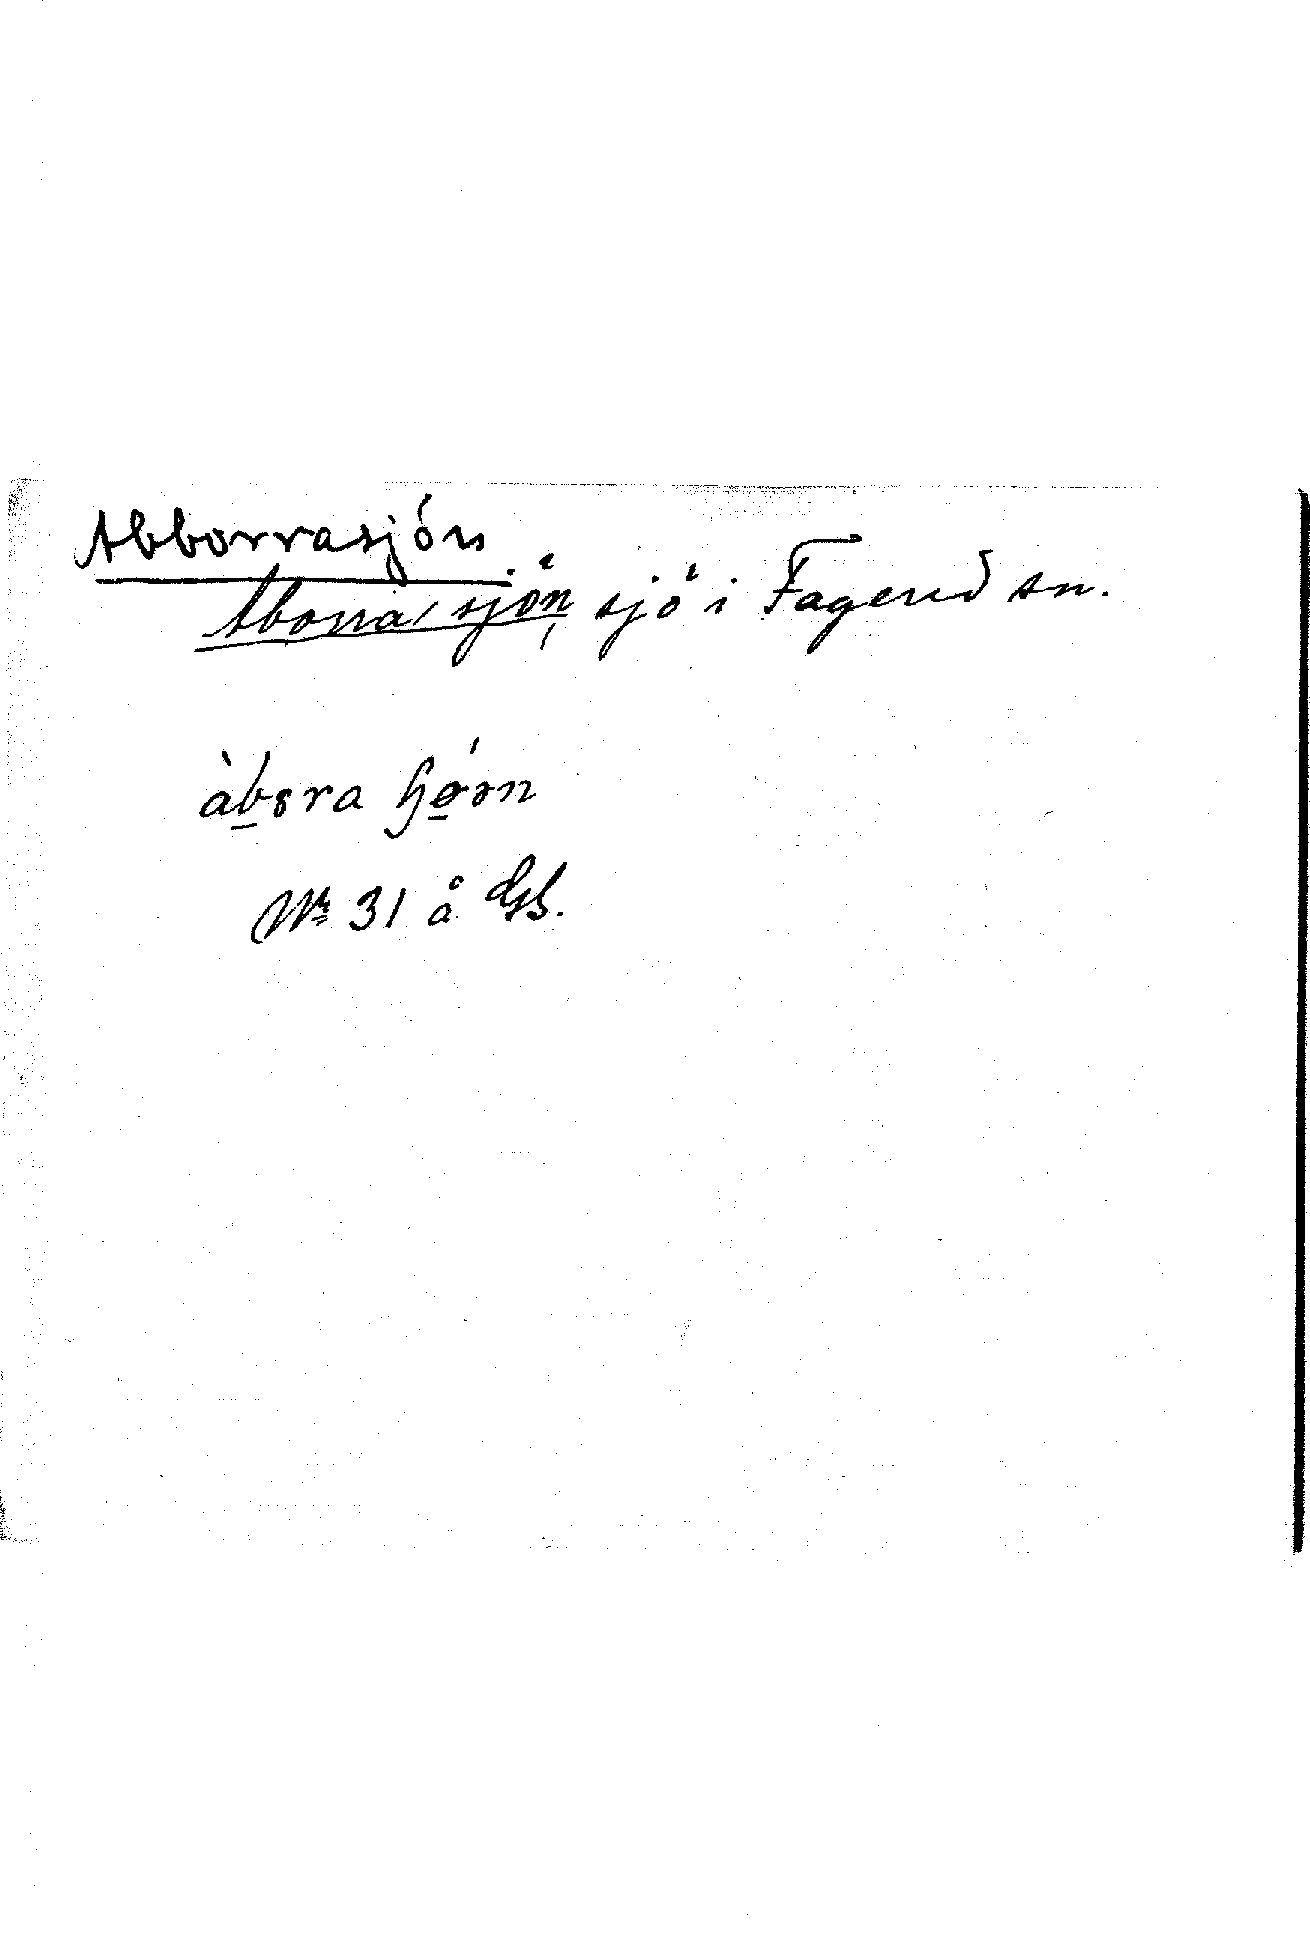 Abborrasjön
Aborra sjön, sjö i Fagerud sn.
àbƨra
Nr 31 å Gsb.